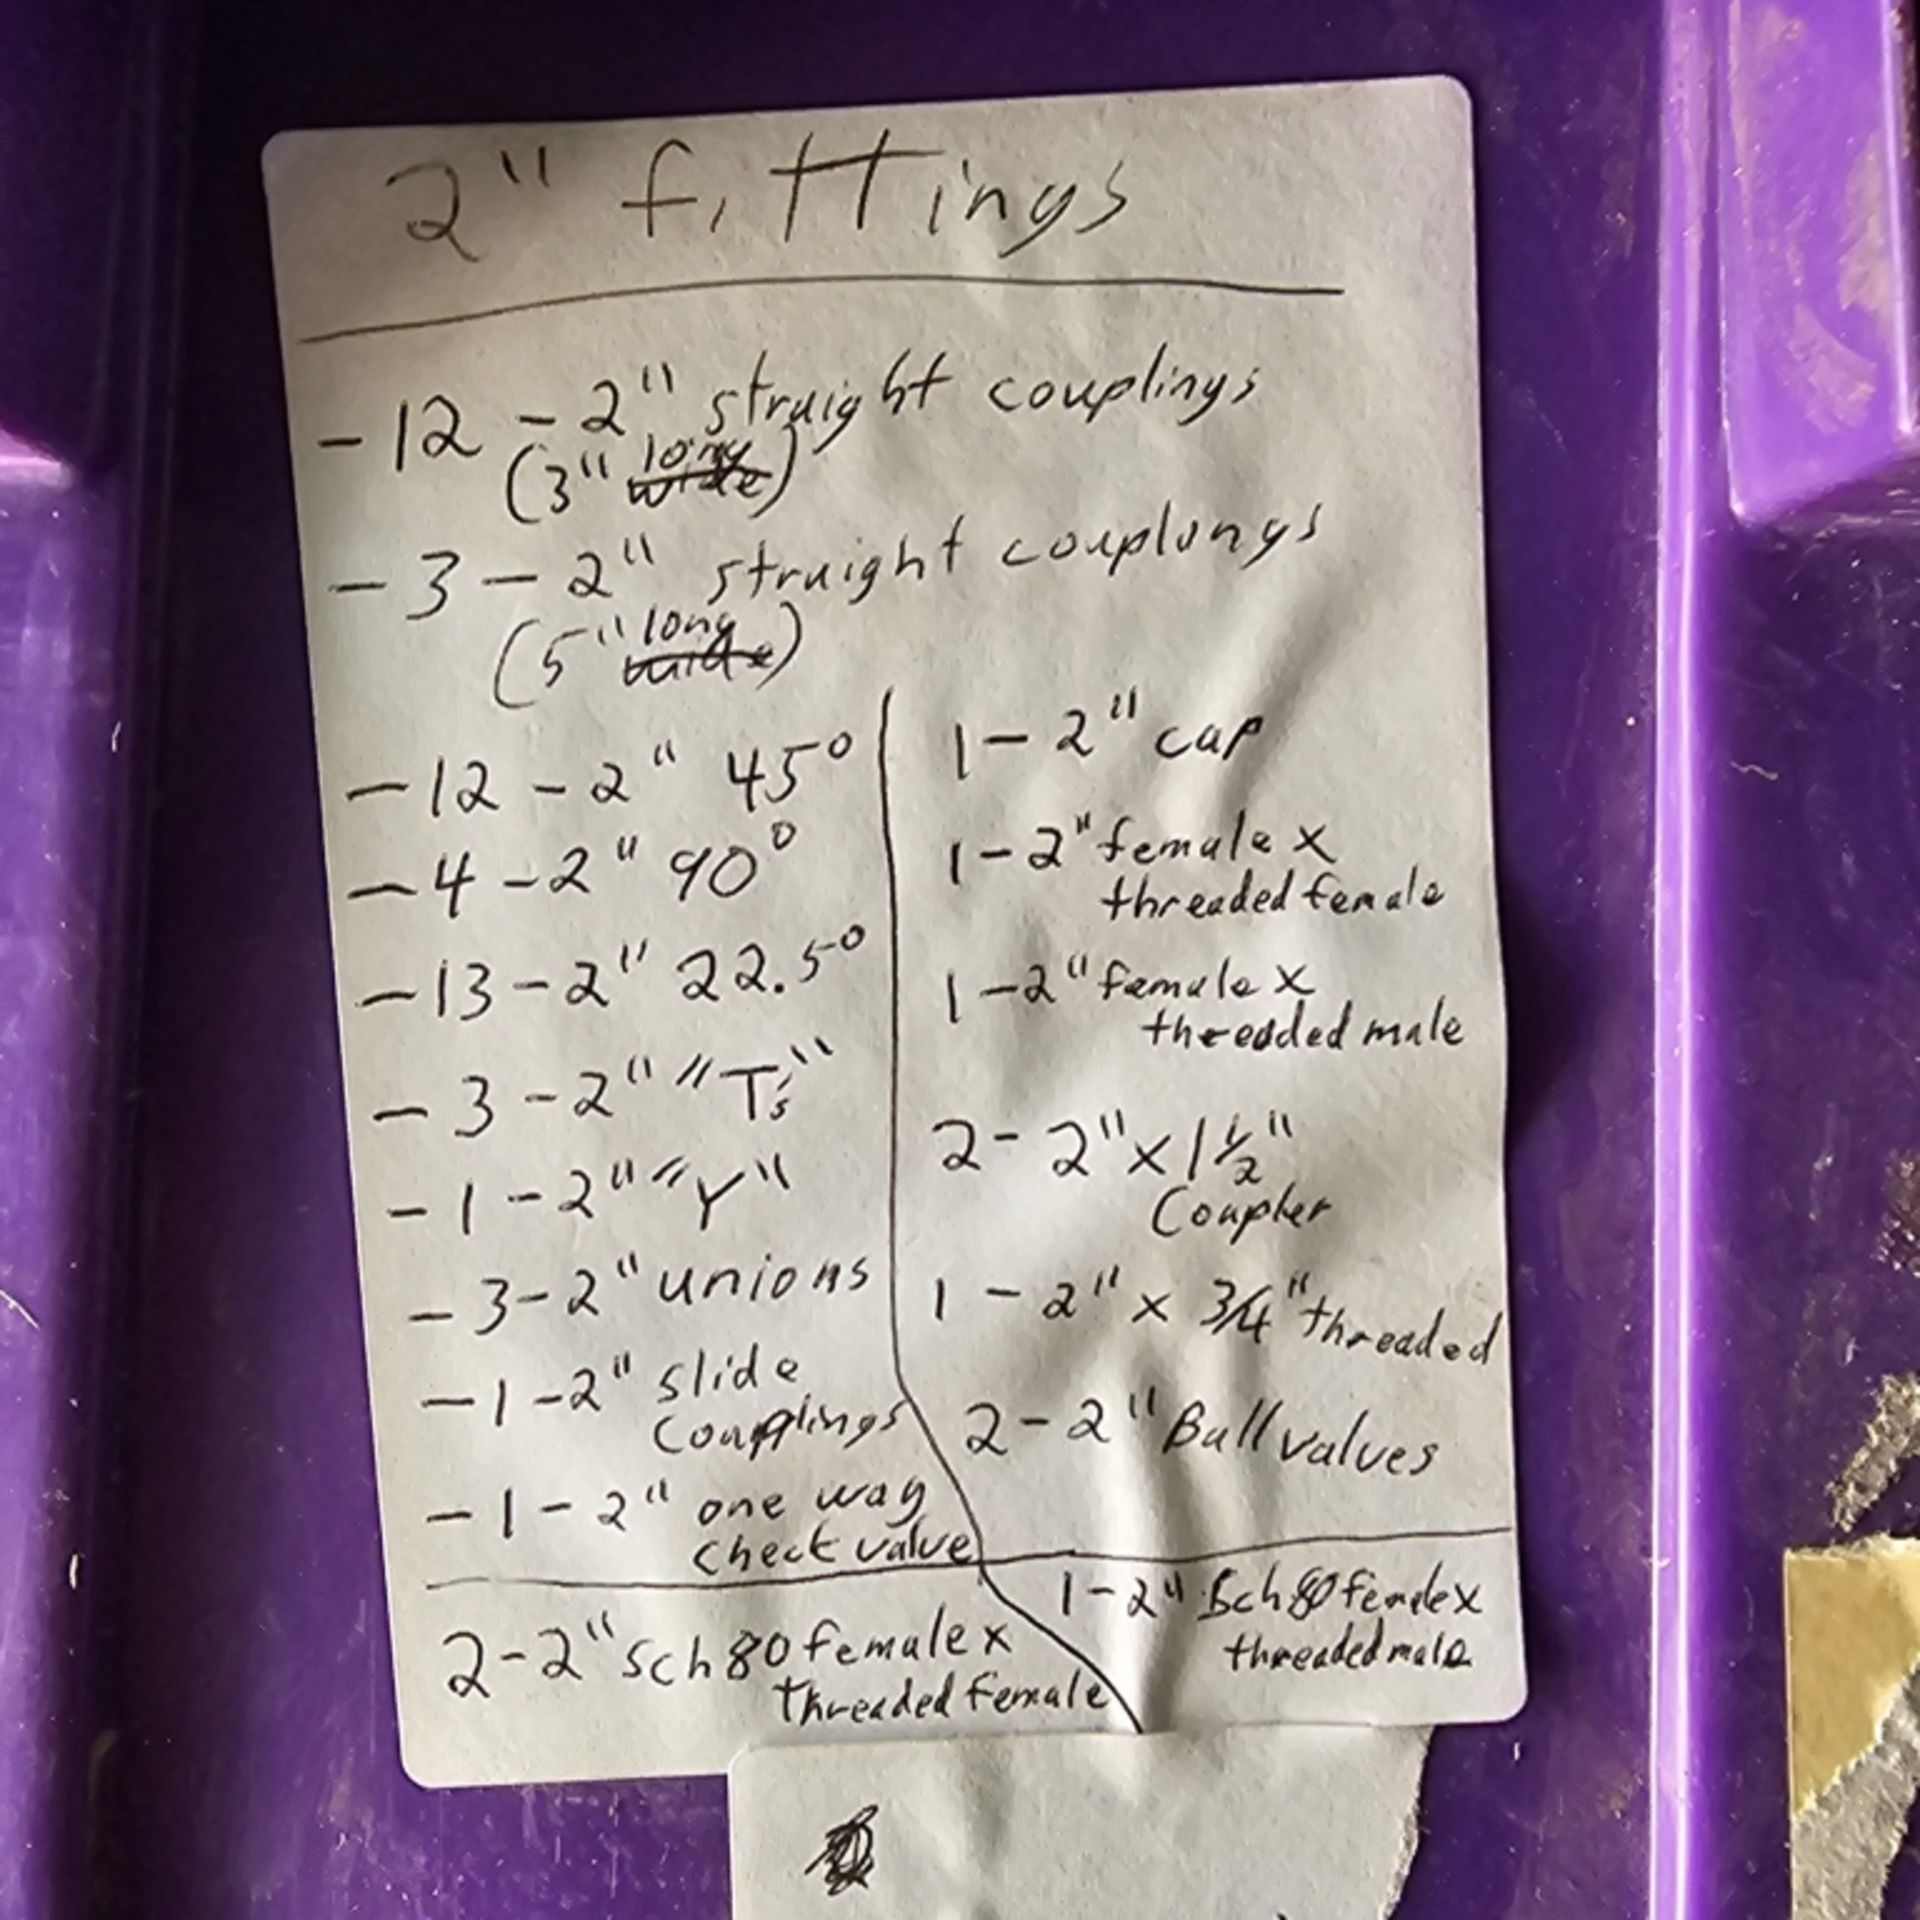 2" fittings
- 12 - 2" straight couplings
(3" long wide)
- 3 - 2" straight couplungs
(5" long wide)
- 12 - 2" 45°
- 4 - 2" 90°
- 13 - 2" 22.5°
- 3 - 2" "T's"
- 1 - 2" "Y"
- 3 - 2" unions
- 1 - 2" slide
couplings
- 1 - 2" one way
check valve
1 - 2" cap
1 - 2" female x
threaded female
1 - 2" female x
threaded male
2 - 2" x 1 1/2"
Coupler
1 - 2" x 3/4" threaded
2 - 2" Ball valves
2 - 2" Sch 80 female x
threaded female
1 - 2" Sch 80 female x
threaded male